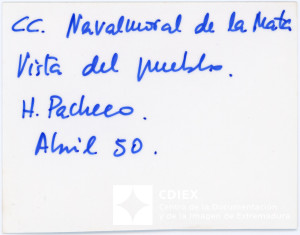 CC. Navalmoral de la Mata
Vista del pueblo.
H. Pacheco.
Abril 50.
CDIEX
Centro de la Documentación
y de la Imagen de Extremadura